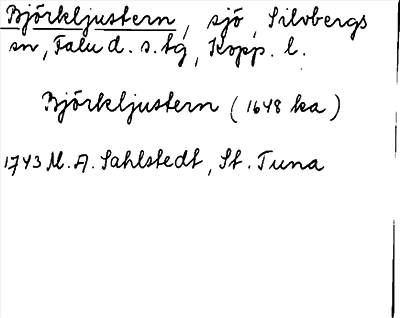 Björkljustern, sjö, Silvbergs
sn, Falu d. s. tg, Kopp. l.
Björkljustern (1648 ka)
1743 M. A. Sahlstedt, St. Tuna